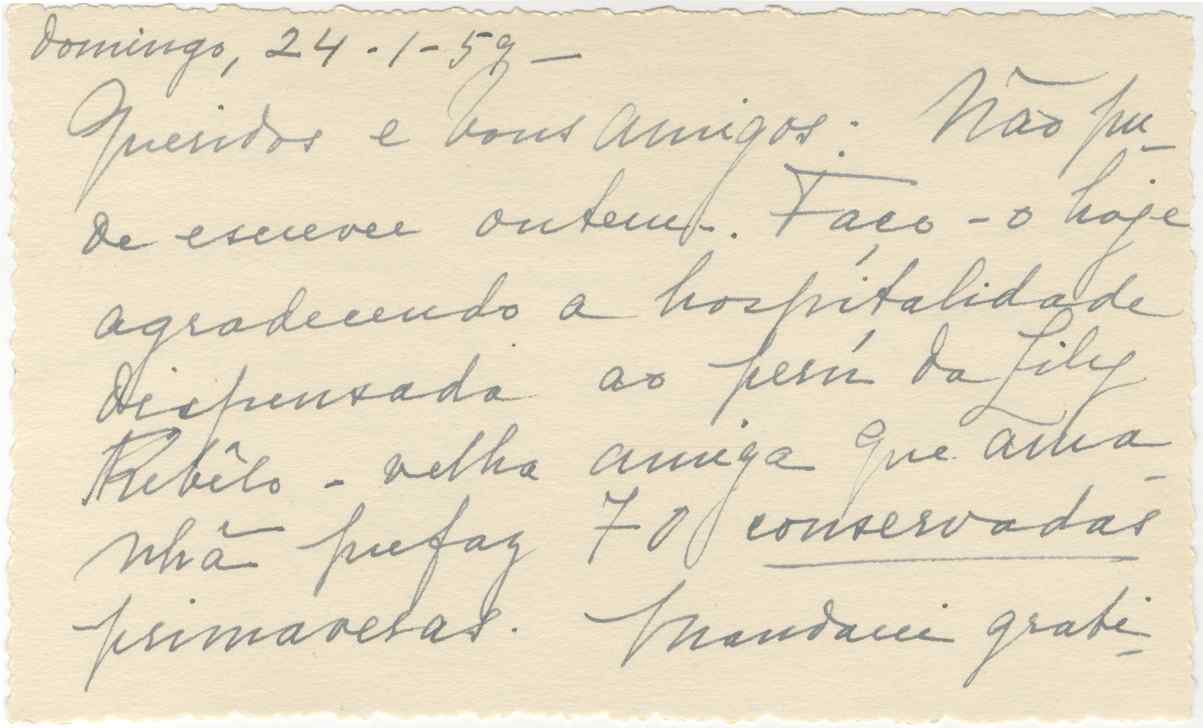 Domingo, 24-1-59-
Queridos e bons amigos: Não pu-
de escrever ontem-. Faço-o hoje
agradecendo a hospitalidade
dispensada ao perú da Lily
Rebêlo - velha amiga que ama-
nhã prefaz 70 conservadas
primaveras. Mandarei grati-